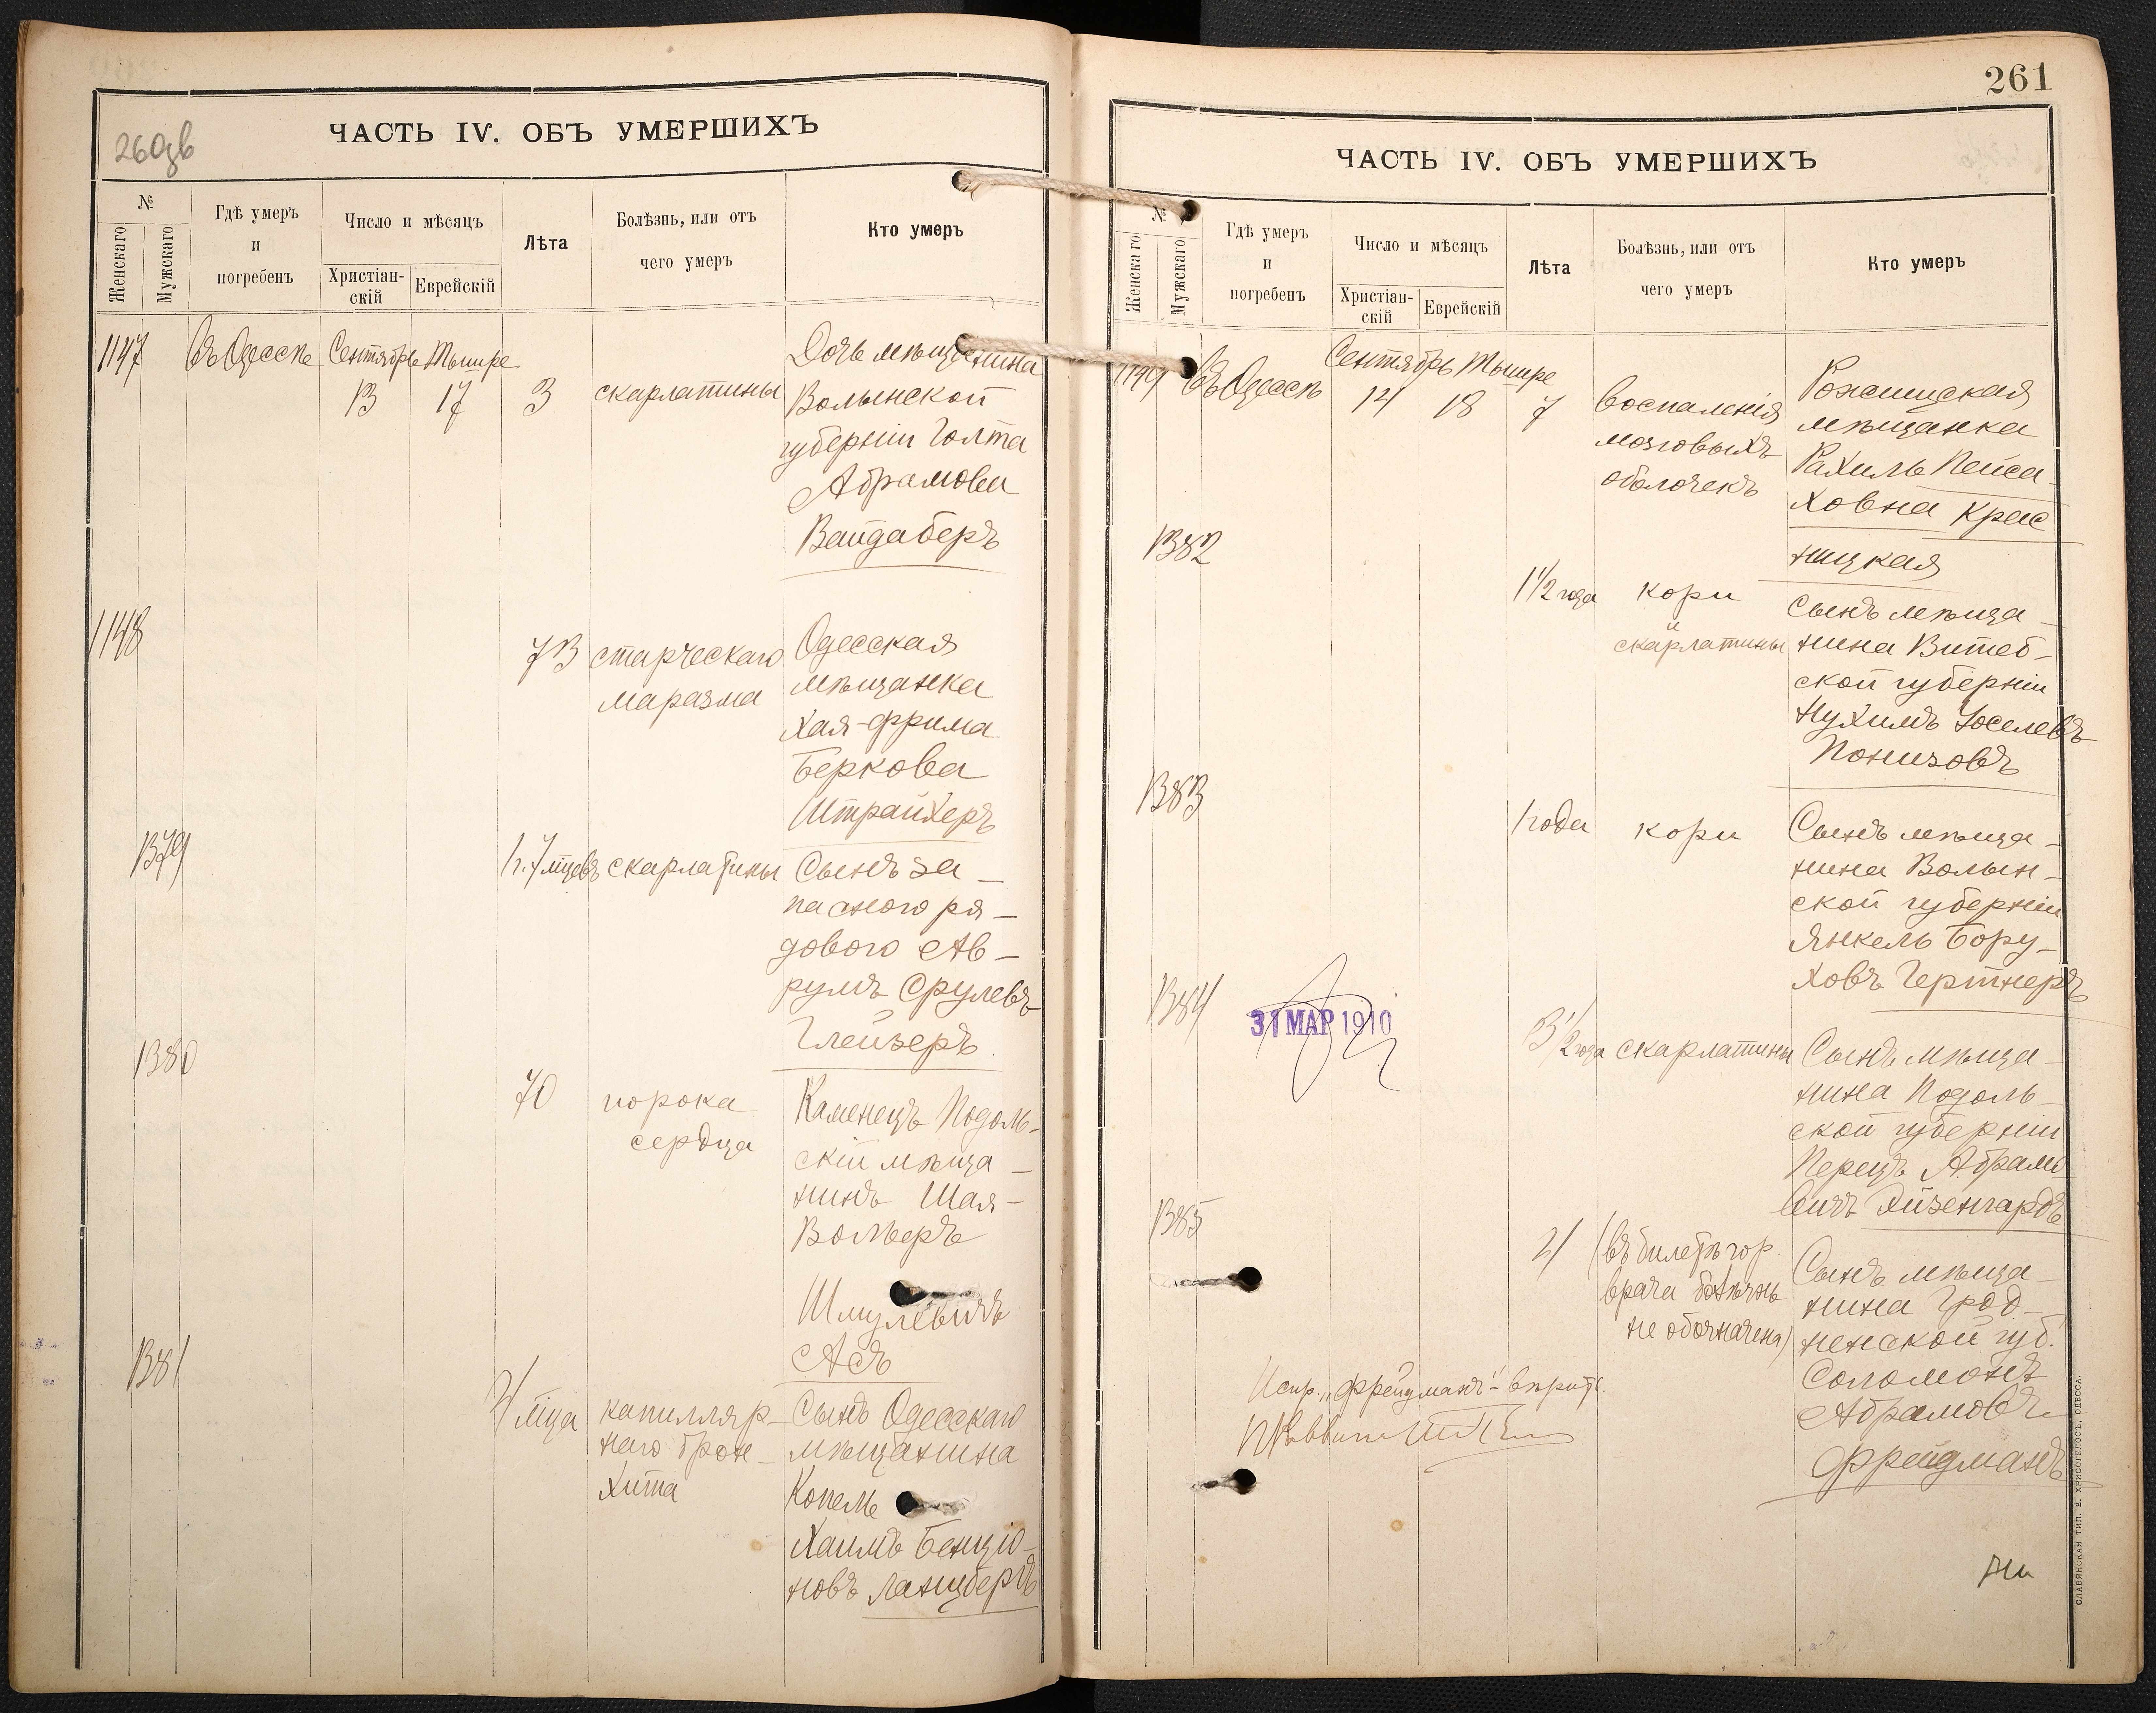 260зв
ЧАСТЬ IV. ОБЪ УМЕРШИХЪ
№
Женскаго
Мужскаго
Гдѣ умеръ
и
погребенъ
Число и мѣсяцъ
Христіан-
скій
Еврейскій
Лѣта
Болѣзнь, или отъ
чего умеръ
Кто умеръ
1147
Въ Одессѣ
Сентябрь
13
Тышре
17
3
скарлатины
Дочь мѣщанина
Волынской
губерніи Голта
Абрамова
Вайдаберъ
1148
73
старческаго
маразма
Одесская
мѣщанка
Хая-Фрима
Беркова
Штрайхеръ
1379
1 г. 7 мцевъ
скарлатины
Сынъ за-
паснаго ря-
дового Ав-
румъ Срулевъ
Глейзеръ
1380
70
порока
сердца
Каменецъ Подоль-
скій мѣща-
нинъ Шая-
Вольеръ
Шмулевичъ
Асъ
1381
мца
капилляр-
наго брон-
хита
Сынъ Одесскаго
мѣщанина
Копель
Хаимъ Бенціо-
новъ Ланцбергъ
261
ЧАСТЬ IV. ОБЪ УМЕРШИХЪ
№
Женскаго
Мужскаго
Гдѣ умеръ
и
погребенъ
Число и мѣсяцъ
Христіан-
скій
Еврейскій
Лѣта
Болѣзнь, или отъ
чего умеръ
Кто умеръ
1149
Въ Одессѣ
Сентябрь
14
Тышре
18
7
Воспаленія
мозговыхъ
оболочекъ
Рожищская
мѣщанка
Рахиль Пейса-
ховна Крас
ницкая
1382
1 1/2 года
кори
и
скарлатины
Сынъ мѣща-
нина Витеб-
ской губерніи
Нухимъ Іоселевъ
Понизовъ
1383
1 года
кори
Сынъ мѣща-
нина Волын-
ской губерніи
Янкель Бору-
ховъ Гертнеръ
1384
31 МАР 1910
3 1/2 года
скарлатины
Сынъ мѣща-
нина Подоль-
ской губерніи
Перецъ Абрамо
вичъ Айзенгардъ
1385
(въ билетѣ гор.
врача болѣзнь
не обозначена)
Сынъ мѣща-
нина Грод-
ненской губ.
Соломонъ
Абрамовъ
Фрейдманъ
Испр. „Фрейдманъ"- вѣрить.
Раввинъ
СЛАВЯНСКАЯ ТИП. Е. ХРИСОГЕЛОСЪ, ОДЕССА.